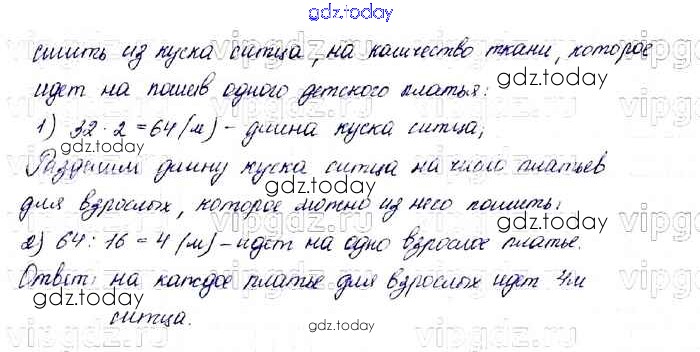 gdz.today
сшить из куска ситца, на количество ткани, которое
gdz.today
идет на пошив одного детского платья:
gdz.today
1) 32 · 2 = 64 (м) - длина куска ситца;
gdz.today
Разделим длину куска ситца на число платьев
gdz.today
для взрослых, которое можно из него пошить:
gdz.today
2) 64 : 16 = 4 (м) - идет на одно взрослое платье.
gdz.today
Ответ: на каждое платье для взрослых идет 4м
gdz.today
ситца.
gdz.today